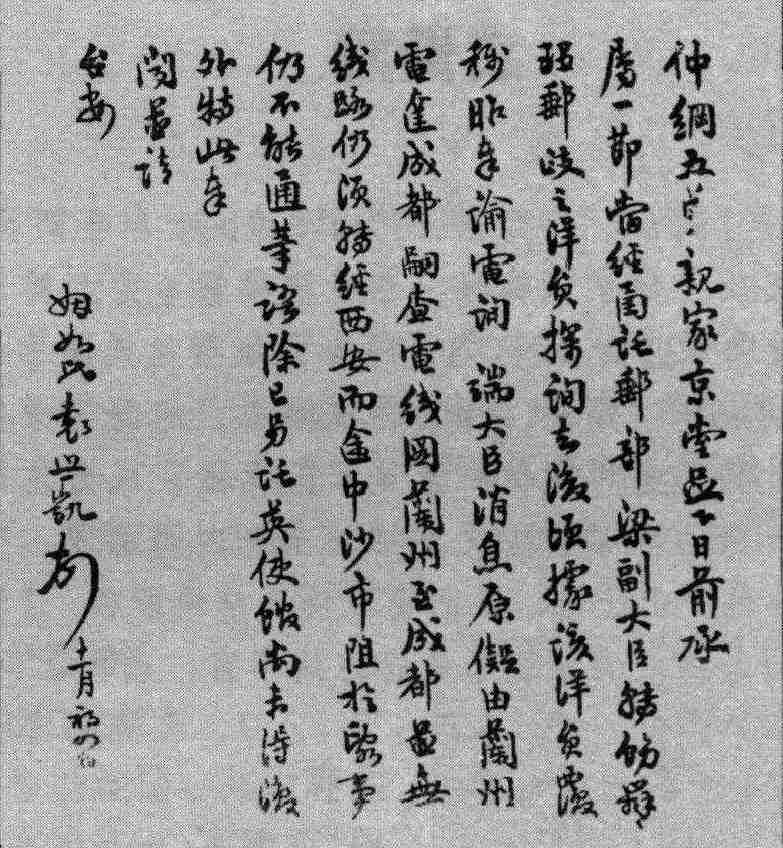 仲綱五哥親家京堂邇下日前承
屬一節當經函託郵部梁副大臣轉飭
郵政之洋員探詢去後頃據該洋員復
稱昨奉諭電詢 端大臣消息原擬由蘭州
電達成都嗣查電綫圖蘭州至成都並無
綫路仍須轉經西安而途中沙市阻於亂事
仍不能通等語除已另託英使館尚未得復
外特此奉
聞並請
台安
姻如兄袁世凱頓十一月初四日